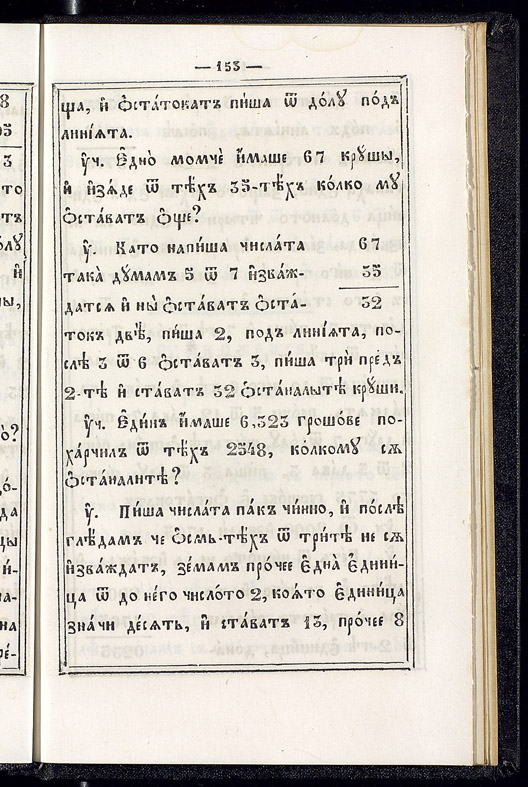 — 153 —
ща, и҆ ѻ҆ста́токатъ пи́ша ѿ до́лꙋ по́дъ
лині́ѧта.
Оу҆ч. Є҆дно̀ момчѐ и҆́маше 67 крꙋ́шы,
и҆ и҆зѧ́де ѿ тѣ́хъ 35-тѣ́хъ ко́лко мꙋ
ѻ҆ста́ватъ ѻ҆́ще?
Оу҆. Като напи́ша числа́та 67
така̀ дꙋ́мамъ 5 ѿ 7 и҆зва́ж- 35
датсѧ и҆ ны̀ ѻ҆ста́ватъ ѻ҆ста́- 32
токъ двѣ̀, пи́ша 2, подъ лині́ѧта, по-
слѣ́ 3 ѿ 6 ѻ҆ста́ватъ 3, пи́ша трѝ пре́дъ
2-тѣ̀ и҆ ста́ватъ 32 ѻ҆ста́налытѣ крꙋ́ши.
Оу҆ч. Є҆ди́нъ и҆́маше 6,323 грошове по-
ха́рчилъ ѿ тѣ́хъ 2548, ко́лкомꙋ сѫ
ѻ҆ста́налитѣ?
Оу҆. Пи́ша числа́та пакъ чи́нно, и҆ по́слѣ
глѣ́дамъ че ѻ҆́смь-тѣ́хъ ѿ три́тѣ не сѧ
и҆зва́ждатъ, зе́мамъ про́чее є҆дна̀ є҆дини́-
ца ѿ до не́го число́то 2, коѧто є҆дини́ца
зна́чи де́сѧть, и҆ ста́ватъ 13, про́чее 8